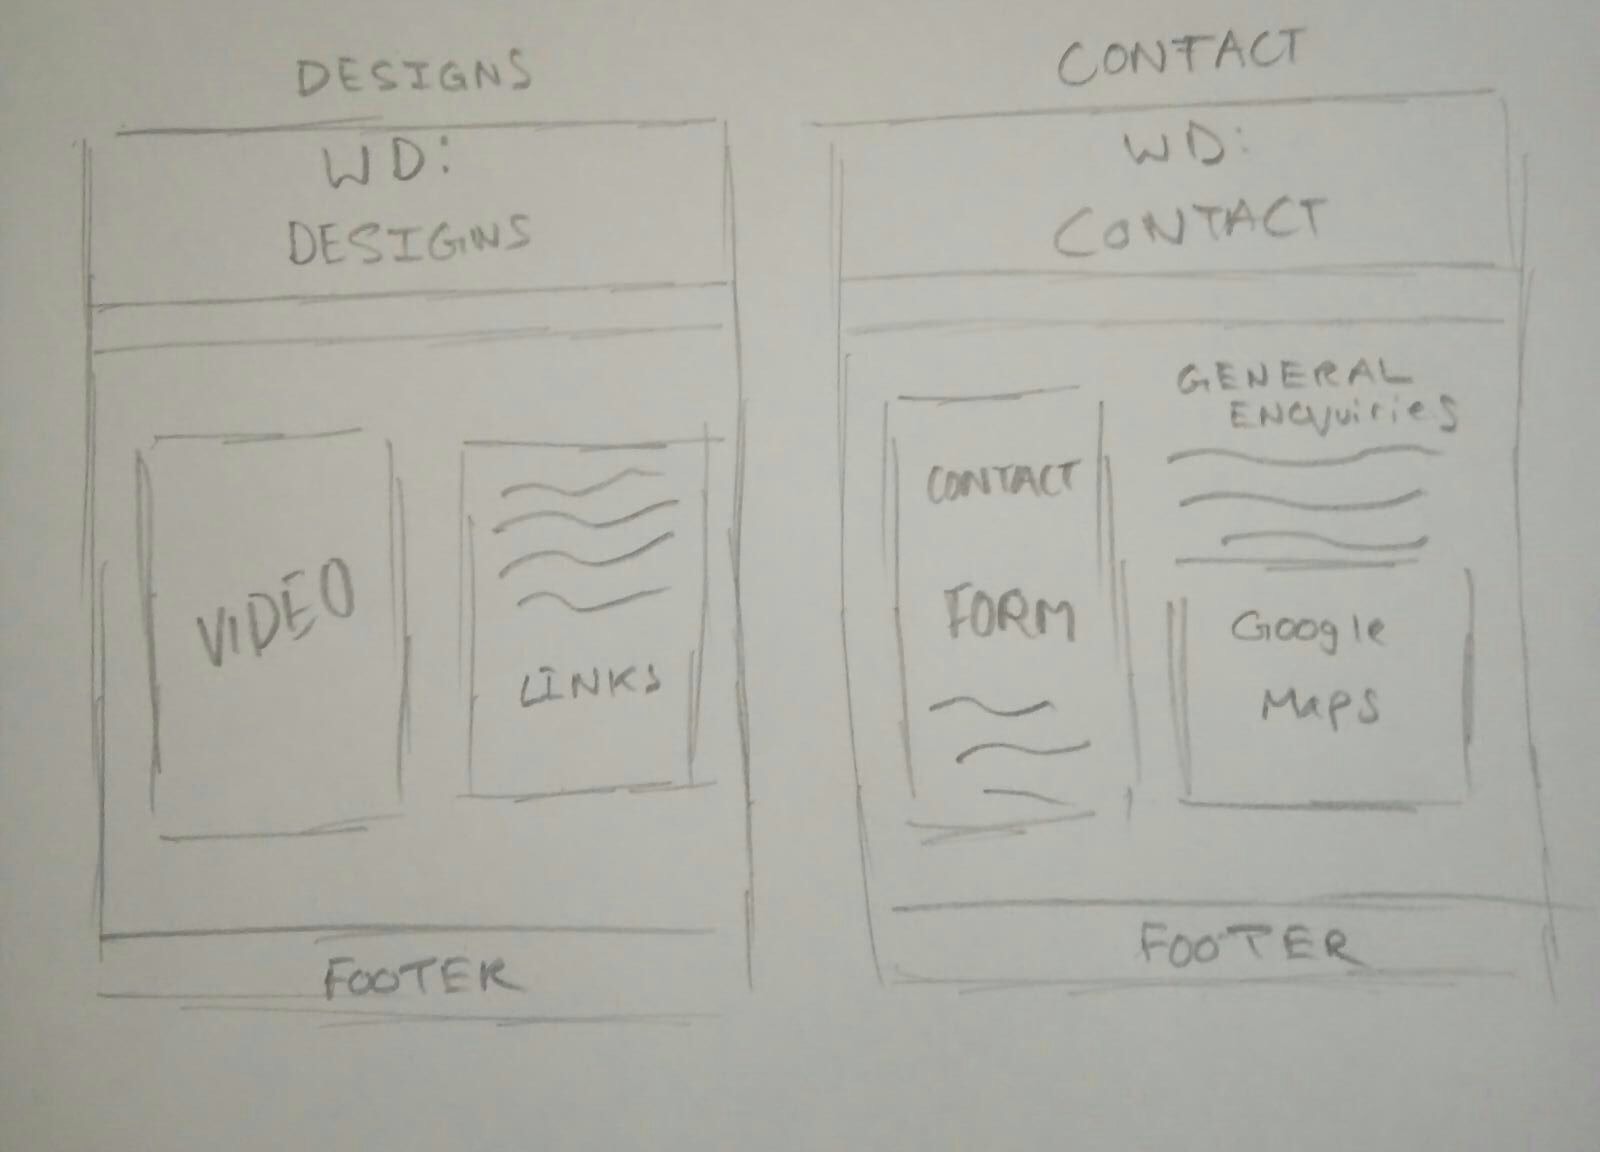 DESIGNS
WD:
DESIGNS
VIDEO
LINKS
FOOTER
CONTACT
WD:
CONTACT
CONTACT
FORM
GENERAL
ENQuiriES
Google
MaPS
FOOTER